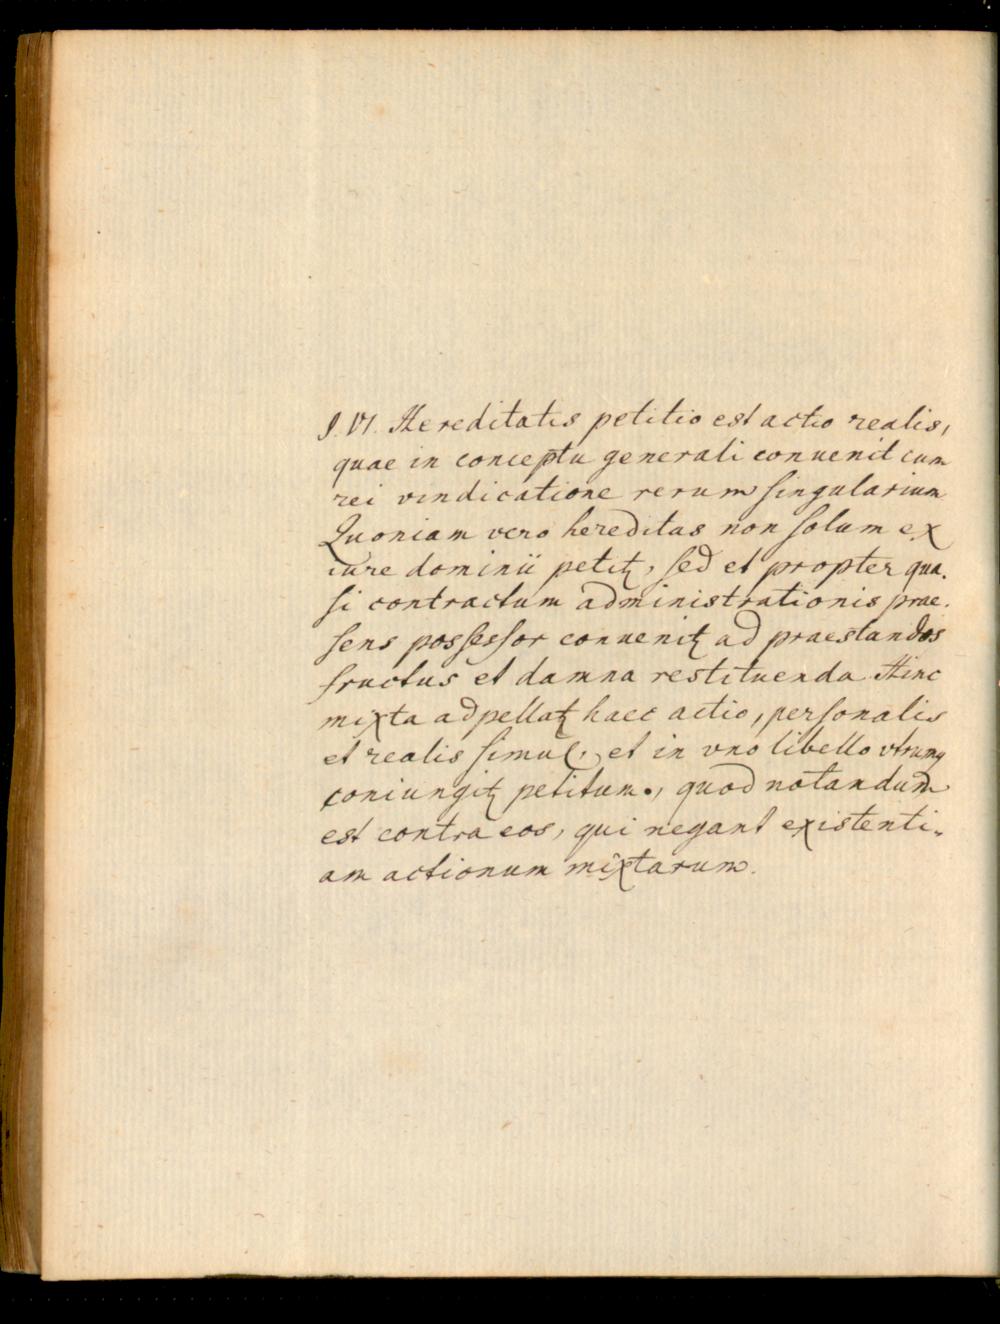 §. VI. Hereditatis petitio est actio realis,
quae in conceptu generali conuenit cum
rei vindicatione rerum singularium
Quoniam vero hereditas non solum ex
iure dominii petitꝫ, sed et propter qua-
si contractum administrationis prae-
sens possessor conuenitꝫ ad praestandos
fructus et damna restituenda Hinc
mixta adpellatꝫ haec actio, personalis
et realis simul, et in vno libello vtrumq
coniungitꝫ petitum., quod notandum
est contra eos, qui negant existenti-
am actionum mixtarum.